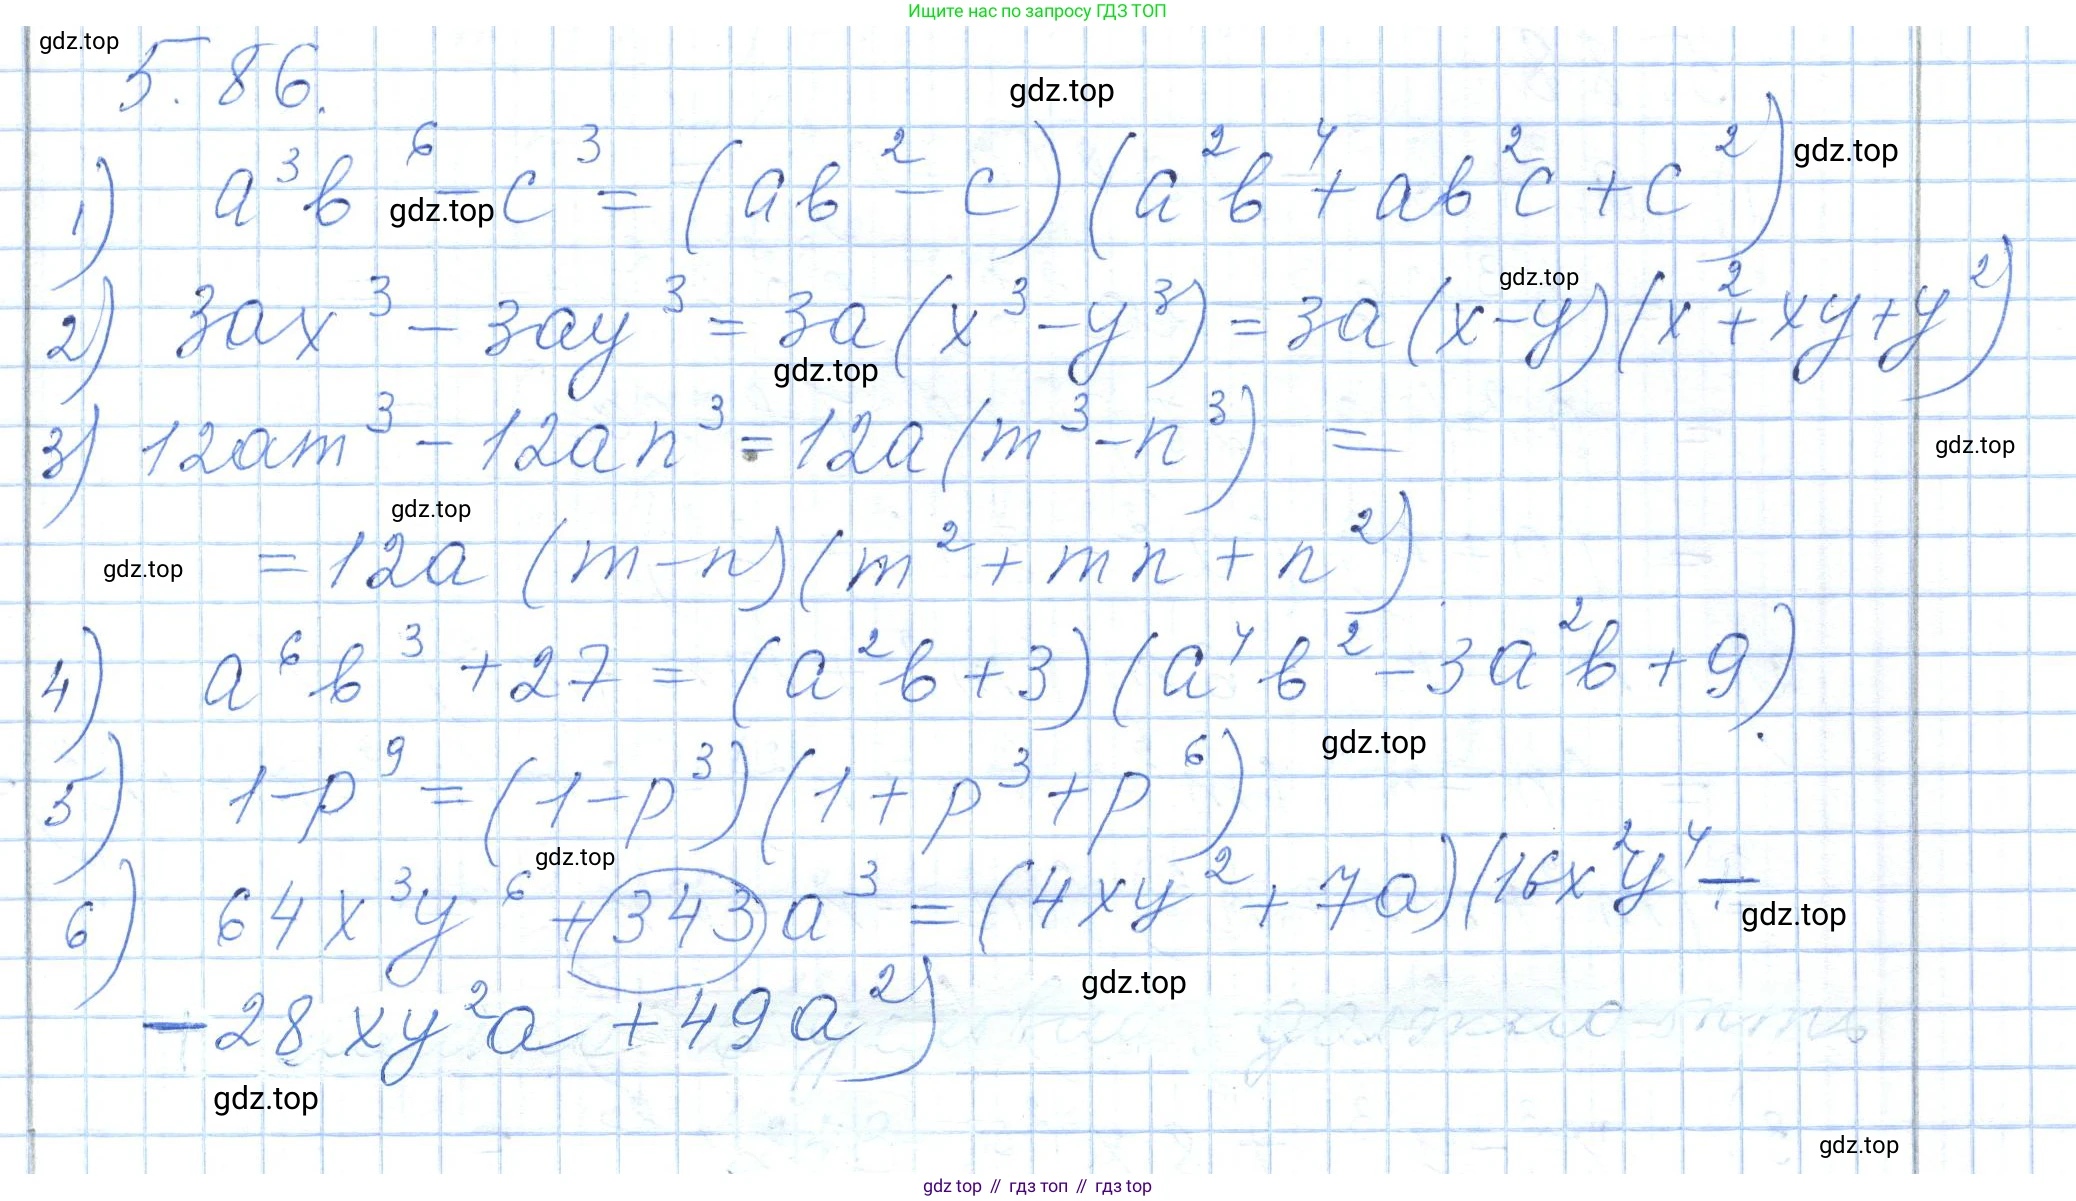 Ищите нас по запросу ГДЗ ТОП
gdz.top
5.86.
gdz.top
1) a³b⁶ - c³ = (ab² - c)(a²b⁴ + ab²c + c²)
gdz.top
gdz.top
gdz.top
2) 3ax³ - 3ay³ = 3a(x³ - y³) = 3a(x - y)(x² + xy + y²)
gdz.top
3) 12am³ - 12an³ = 12a(m³ - n³) =
gdz.top
gdz.top
gdz.top
= 12a (m - n)(m² + mn + n²)
4) a⁶b³ + 27 = (a²b + 3)(a⁴b² - 3a²b + 9)
gdz.top
5) 1 - p⁹ = (1 - p³)(1 + p³ + p⁶)
gdz.top
6) 64x³y⁶ + 343a³ = (4xy² + 7a)(16x²y⁴ -
gdz.top
gdz.top
- 28xy²a + 49a²)
gdz.top
gdz.top
gdz top // гдз топ // гдз top